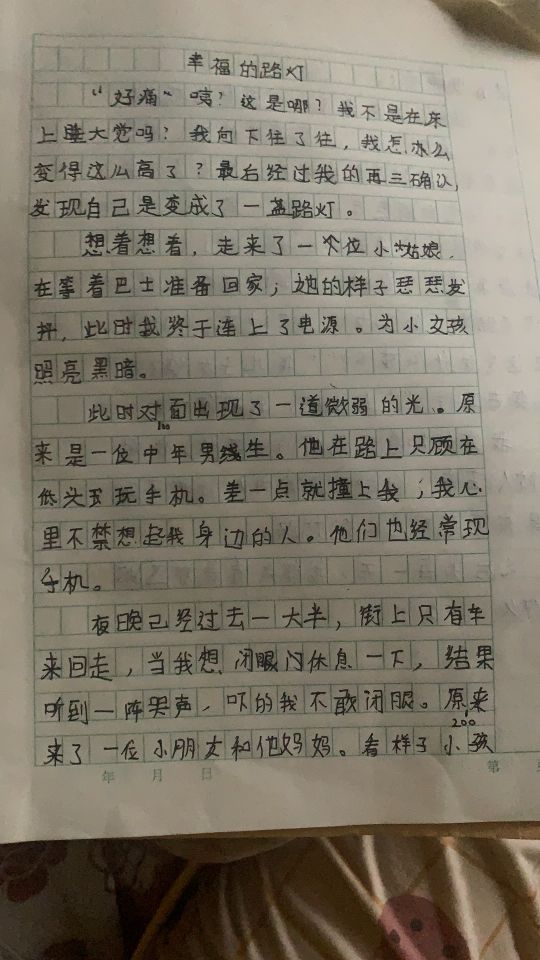 幸福的路灯
“好痛”咦？这是哪？我不是在床
上睡大觉吗？我向下往了往，我怎么
变得这么高了？最后经过我的再三确认，
发现自己是变成了一盏路灯。
想着想着，走来了一个位小姑娘，
在等着巴士准备回家；她的样子瑟瑟发
抖，此时我终于连上了电源。为小女孩
照亮黑暗。
此时对面出现了一道微弱的光。原
100
来是一位中年男线生。他在路上只顾在
低头玩手机。差一点就撞上我；我心
里不禁想起我身边的人。他们也经常现
手机。
夜晚已经过去一大半，街上只有车
来回走，当我想闭眼门休息一下，结果
听到一阵哭声，吓的我不敢闭眼。原来
200
来了一位小朋友和他妈妈。看样子小孩
年 月 日
第